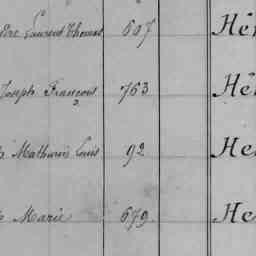 Laurent Thomas 607 Hé
Joseph François 763 Hé
Mathurin Louis 92 He
Marie 679 He